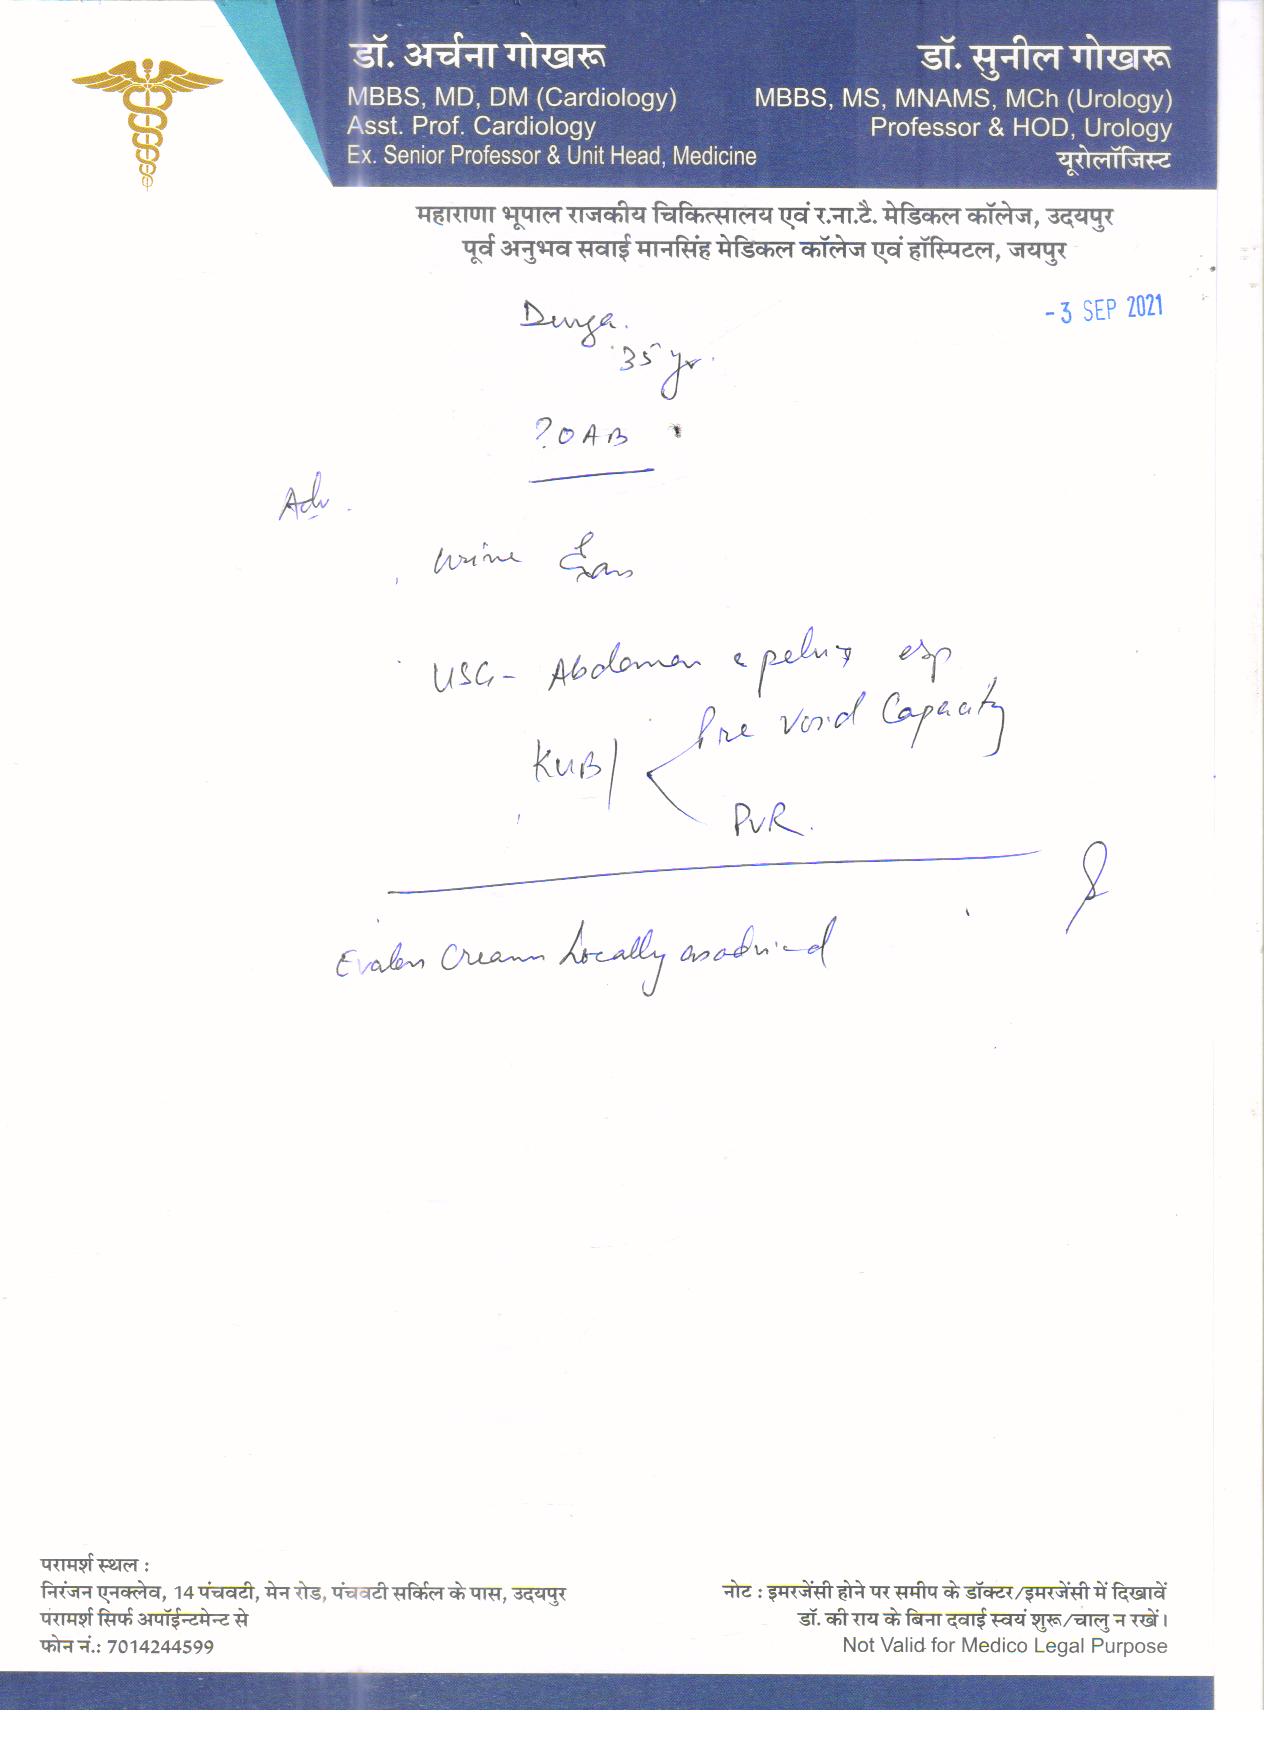 डॉ. अर्चना गोखरू
MBBS, MD, DM (Cardiology)
Asst. Prof. Cardiology
Ex. Senior Professor & Unit Head, Medicine
डॉ. सुनील गोखरू
MBBS, MS, MNAMS, MCh (Urology)
Professor & HOD, Urology
यूरोलॉजिस्ट
महाराणा भूपाल राजकीय चिकित्सालय एवं र.ना.टै. मेडिकल कॉलेज, उदयपुर
पूर्व अनुभव सवाई मानसिंह मेडिकल कॉलेज एवं हॉस्पिटल, जयपुर
-3 SEP 2021
Durga.
35 yr.
? OAB
Adv.
Urine Exam
USG - Abdomen & pelvis esp
Pre Void Capacity
KUB/
PVR.
Evalon Cream Locally as advised
परामर्श स्थल :
निरंजन एनक्लेव, 14 पंचवटी, मेन रोड, पंचवटी सर्किल के पास, उदयपुर
परामर्श सिर्फ अपॉईन्टमेन्ट से
फोन नं.: 7014244599
नोट : इमरजेंसी होने पर समीप के डॉक्टर/इमरजेंसी में दिखावें
डॉ. की राय के बिना दवाई स्वयं शुरू/चालु न रखें।
Not Valid for Medico Legal Purpose